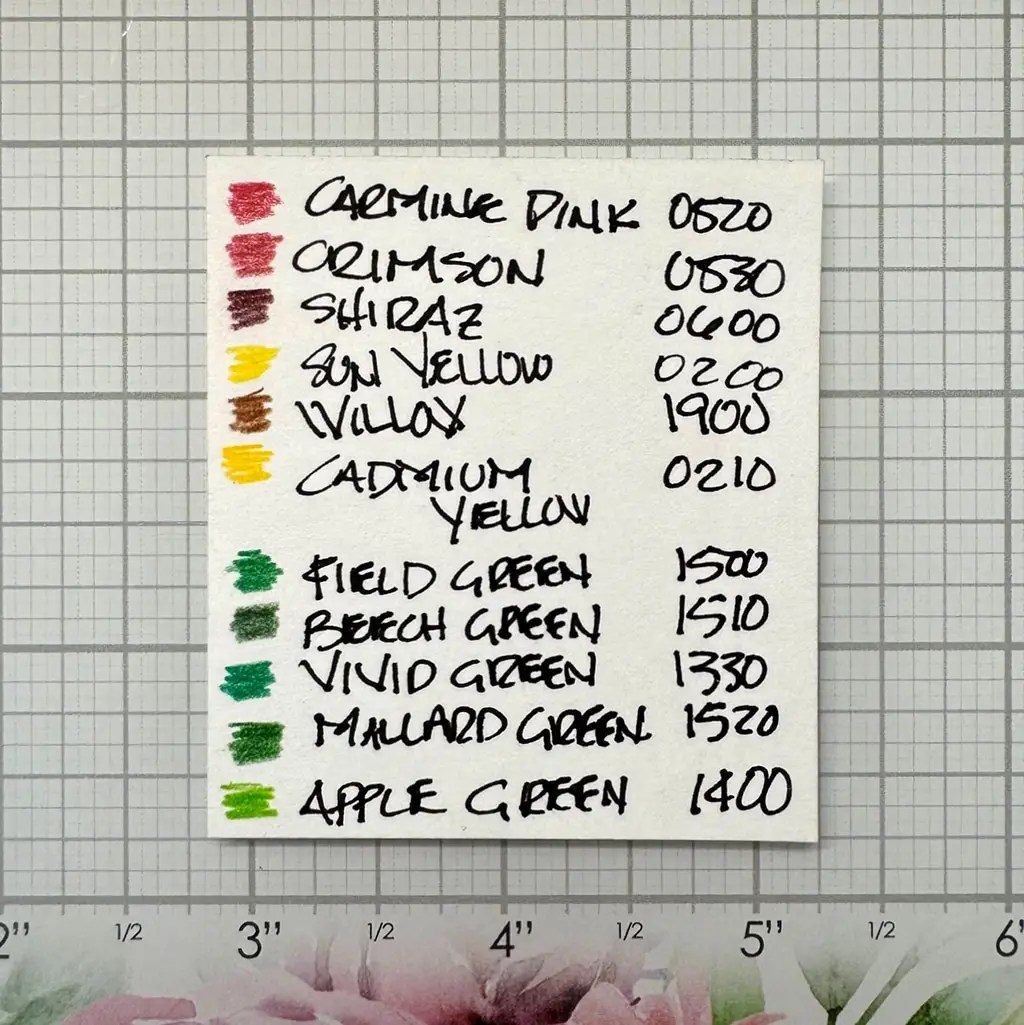 CARMINE PINK 0520
CRIMSON 0530
SHIRAZ 0600
SUN YELLOW 0200
WILLOW 1900
CADMIUM 0210
YELLOW
FIELD GREEN 1500
BEECH GREEN 1510
VIVID GREEN 1330
MALLARD GREEN 1520
APPLE GREEN 1400
2" 1/2 3" 1/2 4" 1/2 5" 1/2 6"